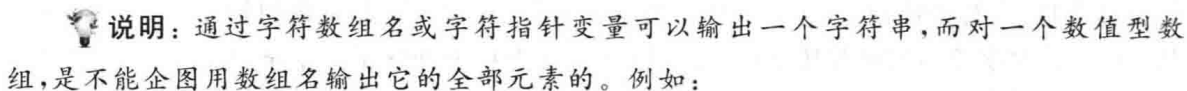 说明：通过字符数组名或字符指针变量可以输出一个字符串,而对一个数值型数
组,是不能企图用数组名输出它的全部元素的。例如：